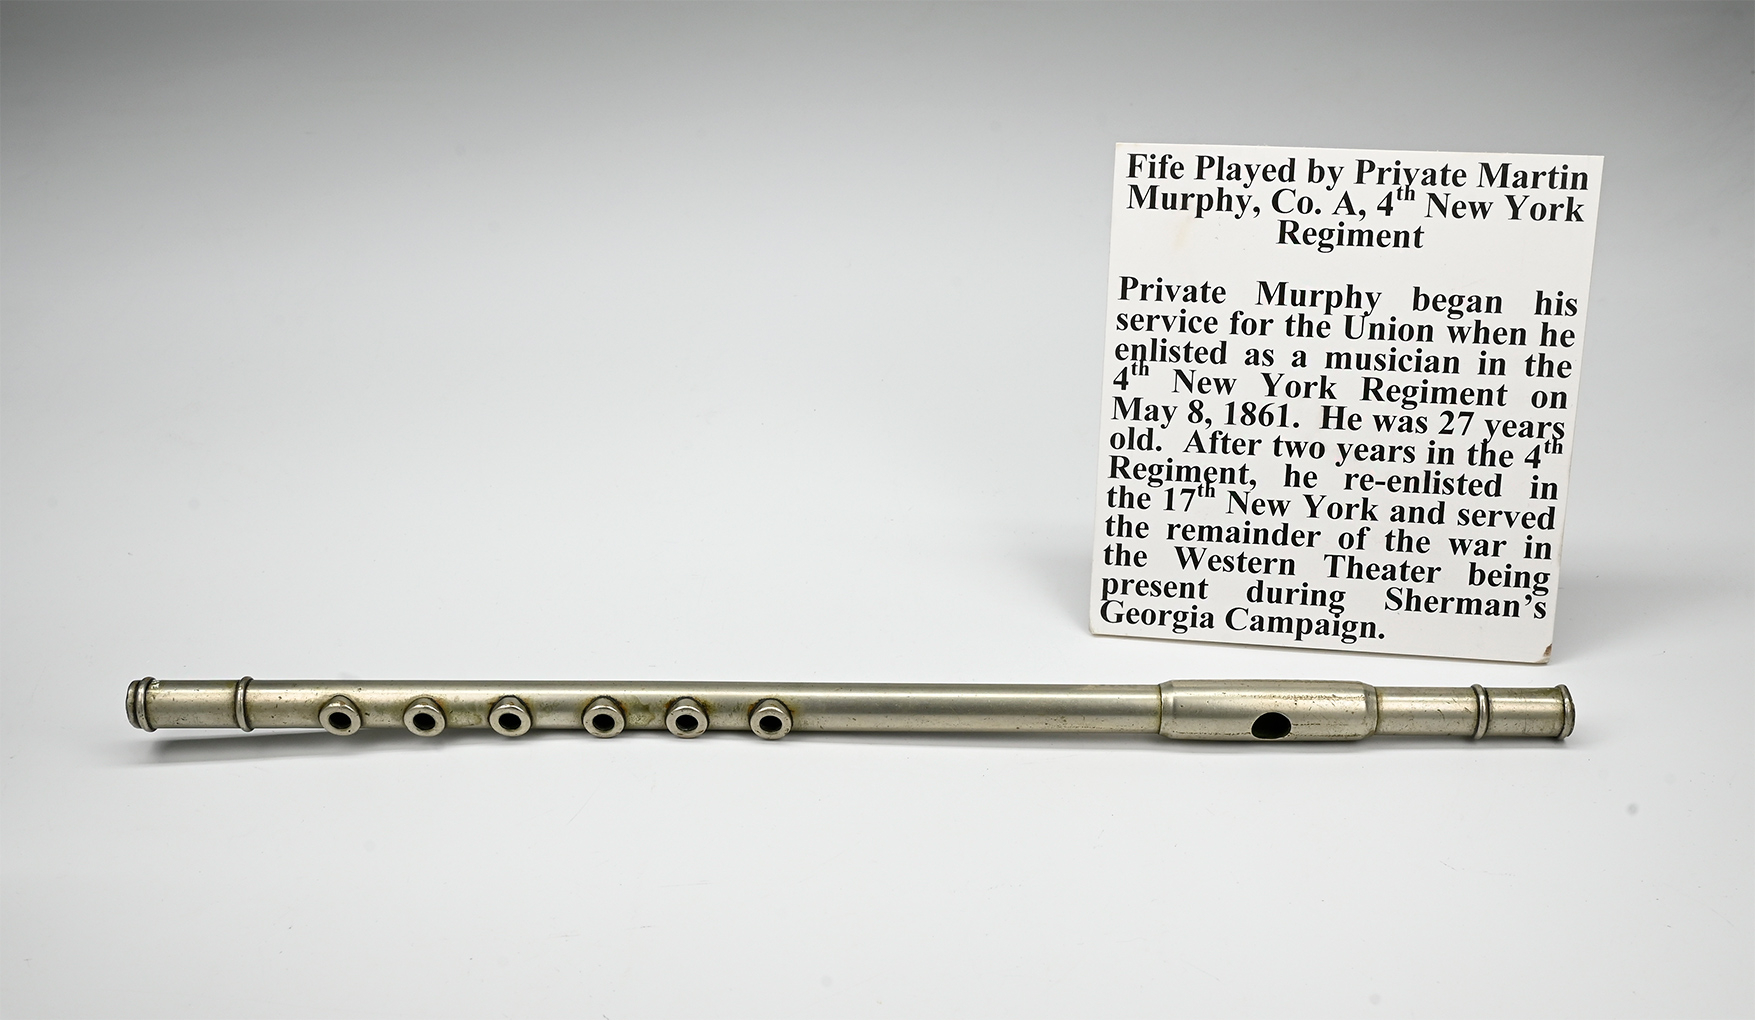 Fife Played by Private Martin
Murphy, Co. A, 4th New York
Regiment
Private Murphy began his
service for the Union when he
enlisted as a musician in the
4th New York Regiment on
May 8, 1861. He was 27 years
old. After two years in the 4th
Regiment, he re-enlisted in
the 17th New York and served
the remainder of the war in
the Western Theater being
present during Sherman's
Georgia Campaign.